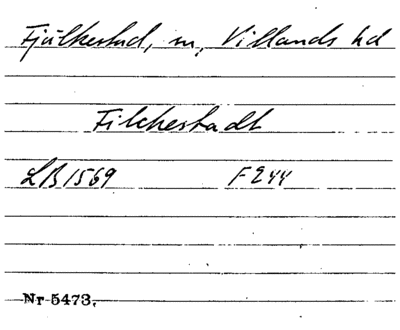 Fjälkestad, sn, Villands hd
Filchestadt
LB 1569 F 244
Nr 5473.